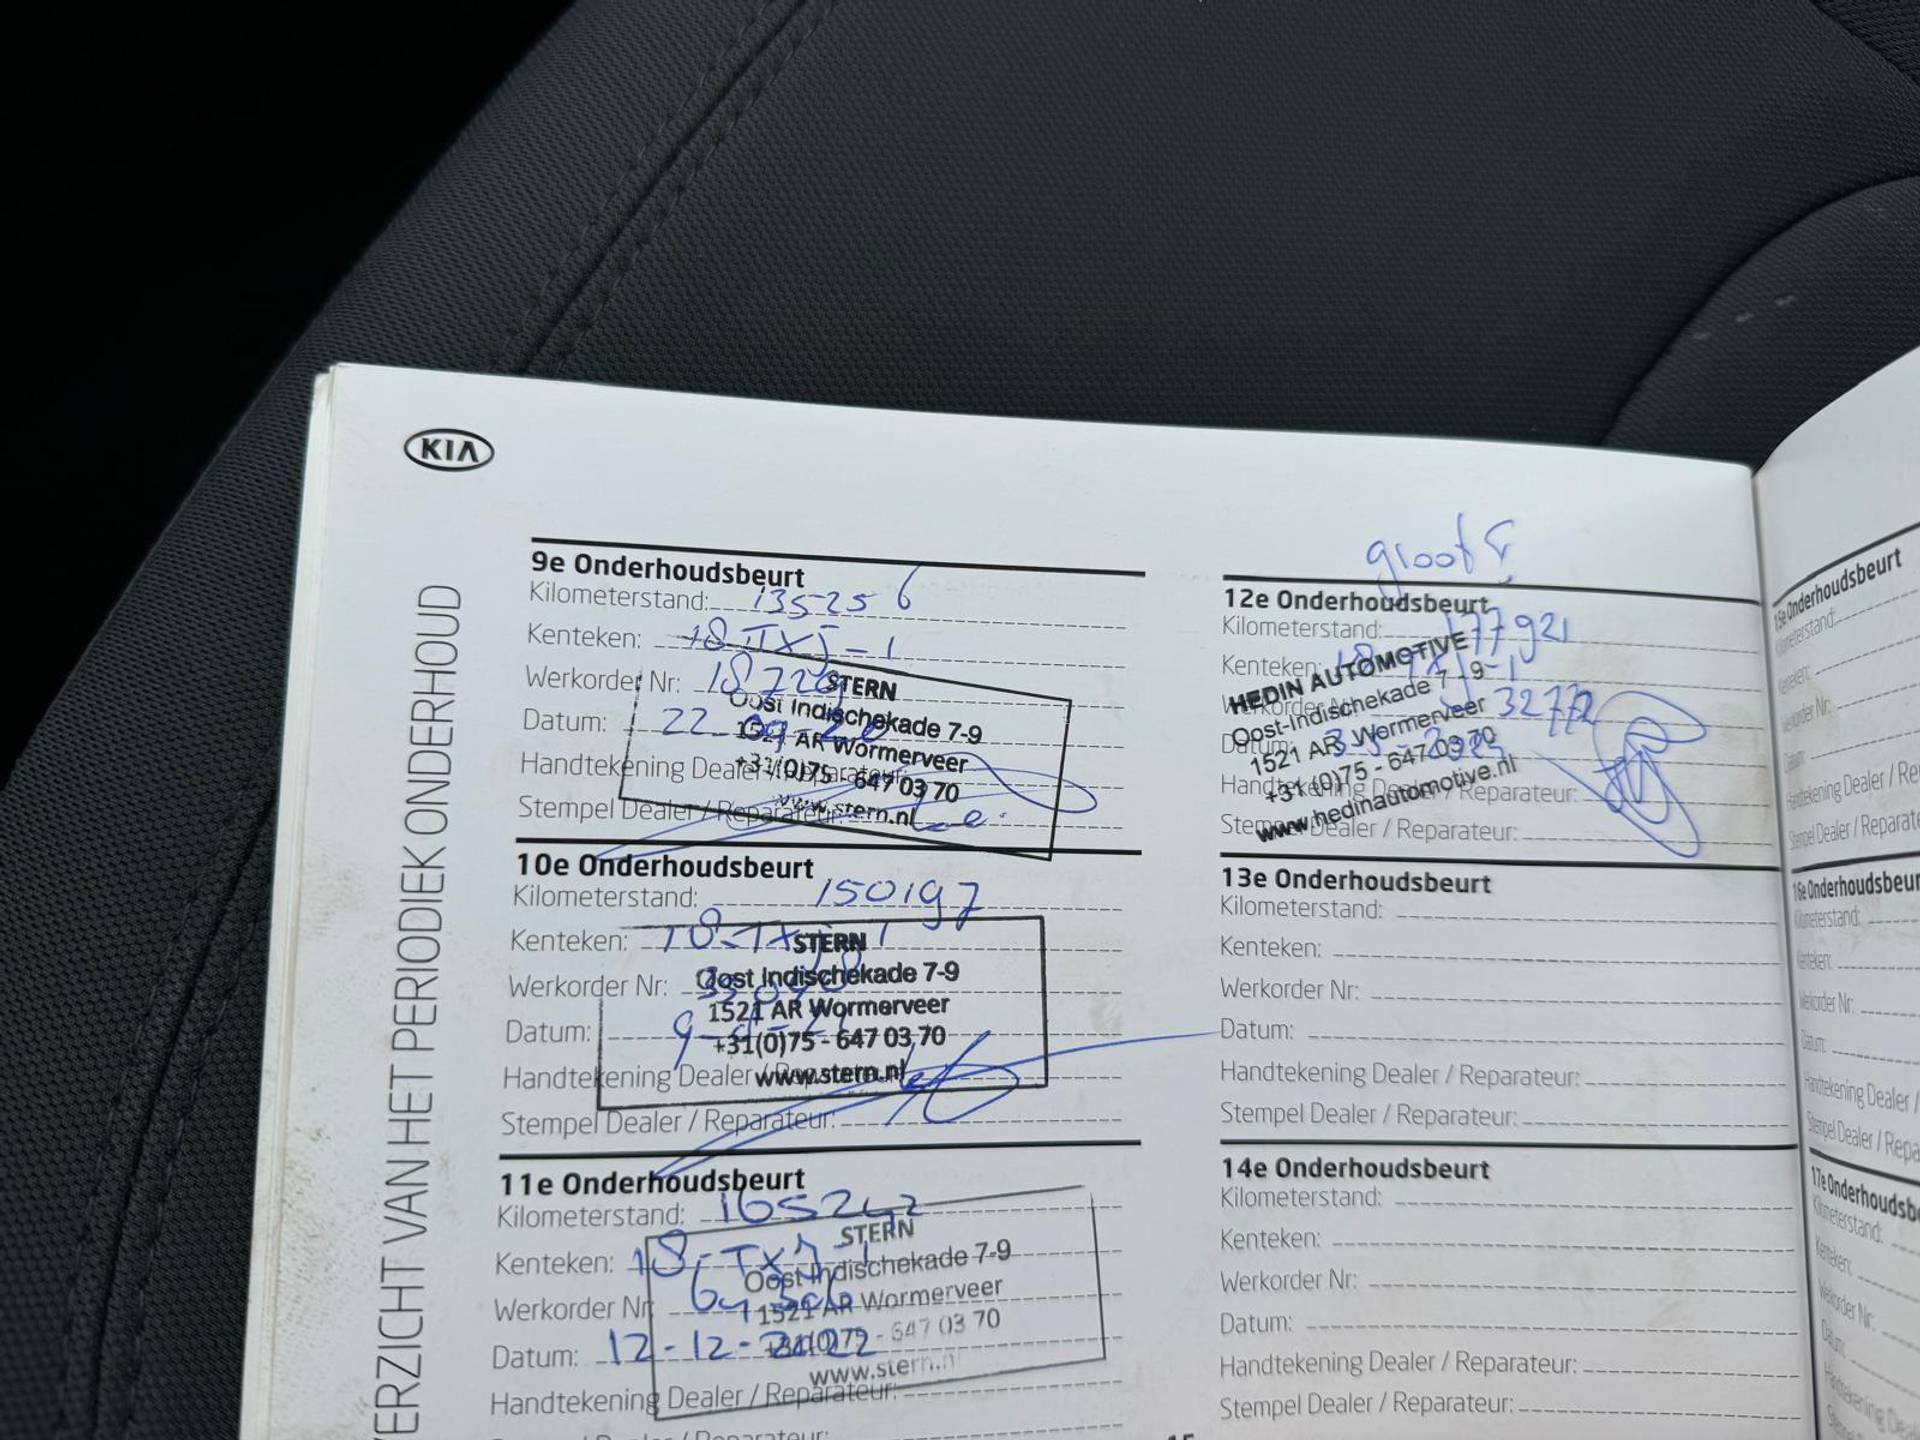 KIA
VERZICHT VAN HET PERIODIEK ONDERHOUD
9e Onderhoudsbeurt
Kilometerstand: 135256
Kenteken: 18-TXJ-1
Werkorder Nr:
Datum: 22
Handtekening Dealer / Reparateur:
Stempel Dealer / Reparateur:
STERN
Oost Indischekade 7-9
1521 AR Wormerveer
+31(0)75 - 647 03 70
www.stern.nl
10e Onderhoudsbeurt
Kilometerstand: 150197
Kenteken: 18-TXJ-1
Werkorder Nr:
Datum:
Handtekening Dealer / Reparateur:
Stempel Dealer / Reparateur:
STERN
Oost Indischekade 7-9
1521 AR Wormerveer
+31(0)75 - 647 03 70
www.stern.nl
11e Onderhoudsbeurt
Kilometerstand: 165242
Kenteken: 18-TXJ-1
Werkorder Nr:
Datum: 12-12-2022
Handtekening Dealer / Reparateur:
STERN
Oost Indischekade 7-9
1521 AR Wormerveer
+31(0)75 - 647 03 70
www.stern.nl
groot
12e Onderhoudsbeurt
Kilometerstand: 177921
Kenteken: 18-TXJ-1
Werkorder Nr:
Datum:
Handtekening Dealer / Reparateur:
Stempel Dealer / Reparateur:
HEDIN AUTOMOTIVE
Oost-Indischekade 7 - 9
1521 AR Wormerveer
+31 (0)75 - 647 03 70
www.hedinautomotive.nl
13e Onderhoudsbeurt
Kilometerstand:
Kenteken:
Werkorder Nr:
Datum:
Handtekening Dealer / Reparateur:
Stempel Dealer / Reparateur:
14e Onderhoudsbeurt
Kilometerstand:
Kenteken:
Werkorder Nr:
Datum:
Handtekening Dealer / Reparateur:
Stempel Dealer / Reparateur:
15e Onderhoudsbeurt
Kilometerstand:
Kenteken:
Werkorder Nr:
Datum:
Handtekening Dealer / Re
Stempel Dealer / Reparat
16e Onderhoudsbeur
Kilometerstand:
Kenteken:
Werkorder Nr:
Datum:
Handtekening Dealer /
Stempel Dealer / Repa
17e Onderhoudsb
Kilometerstand:
Kenteken:
Werkorder Nr:
Datum: